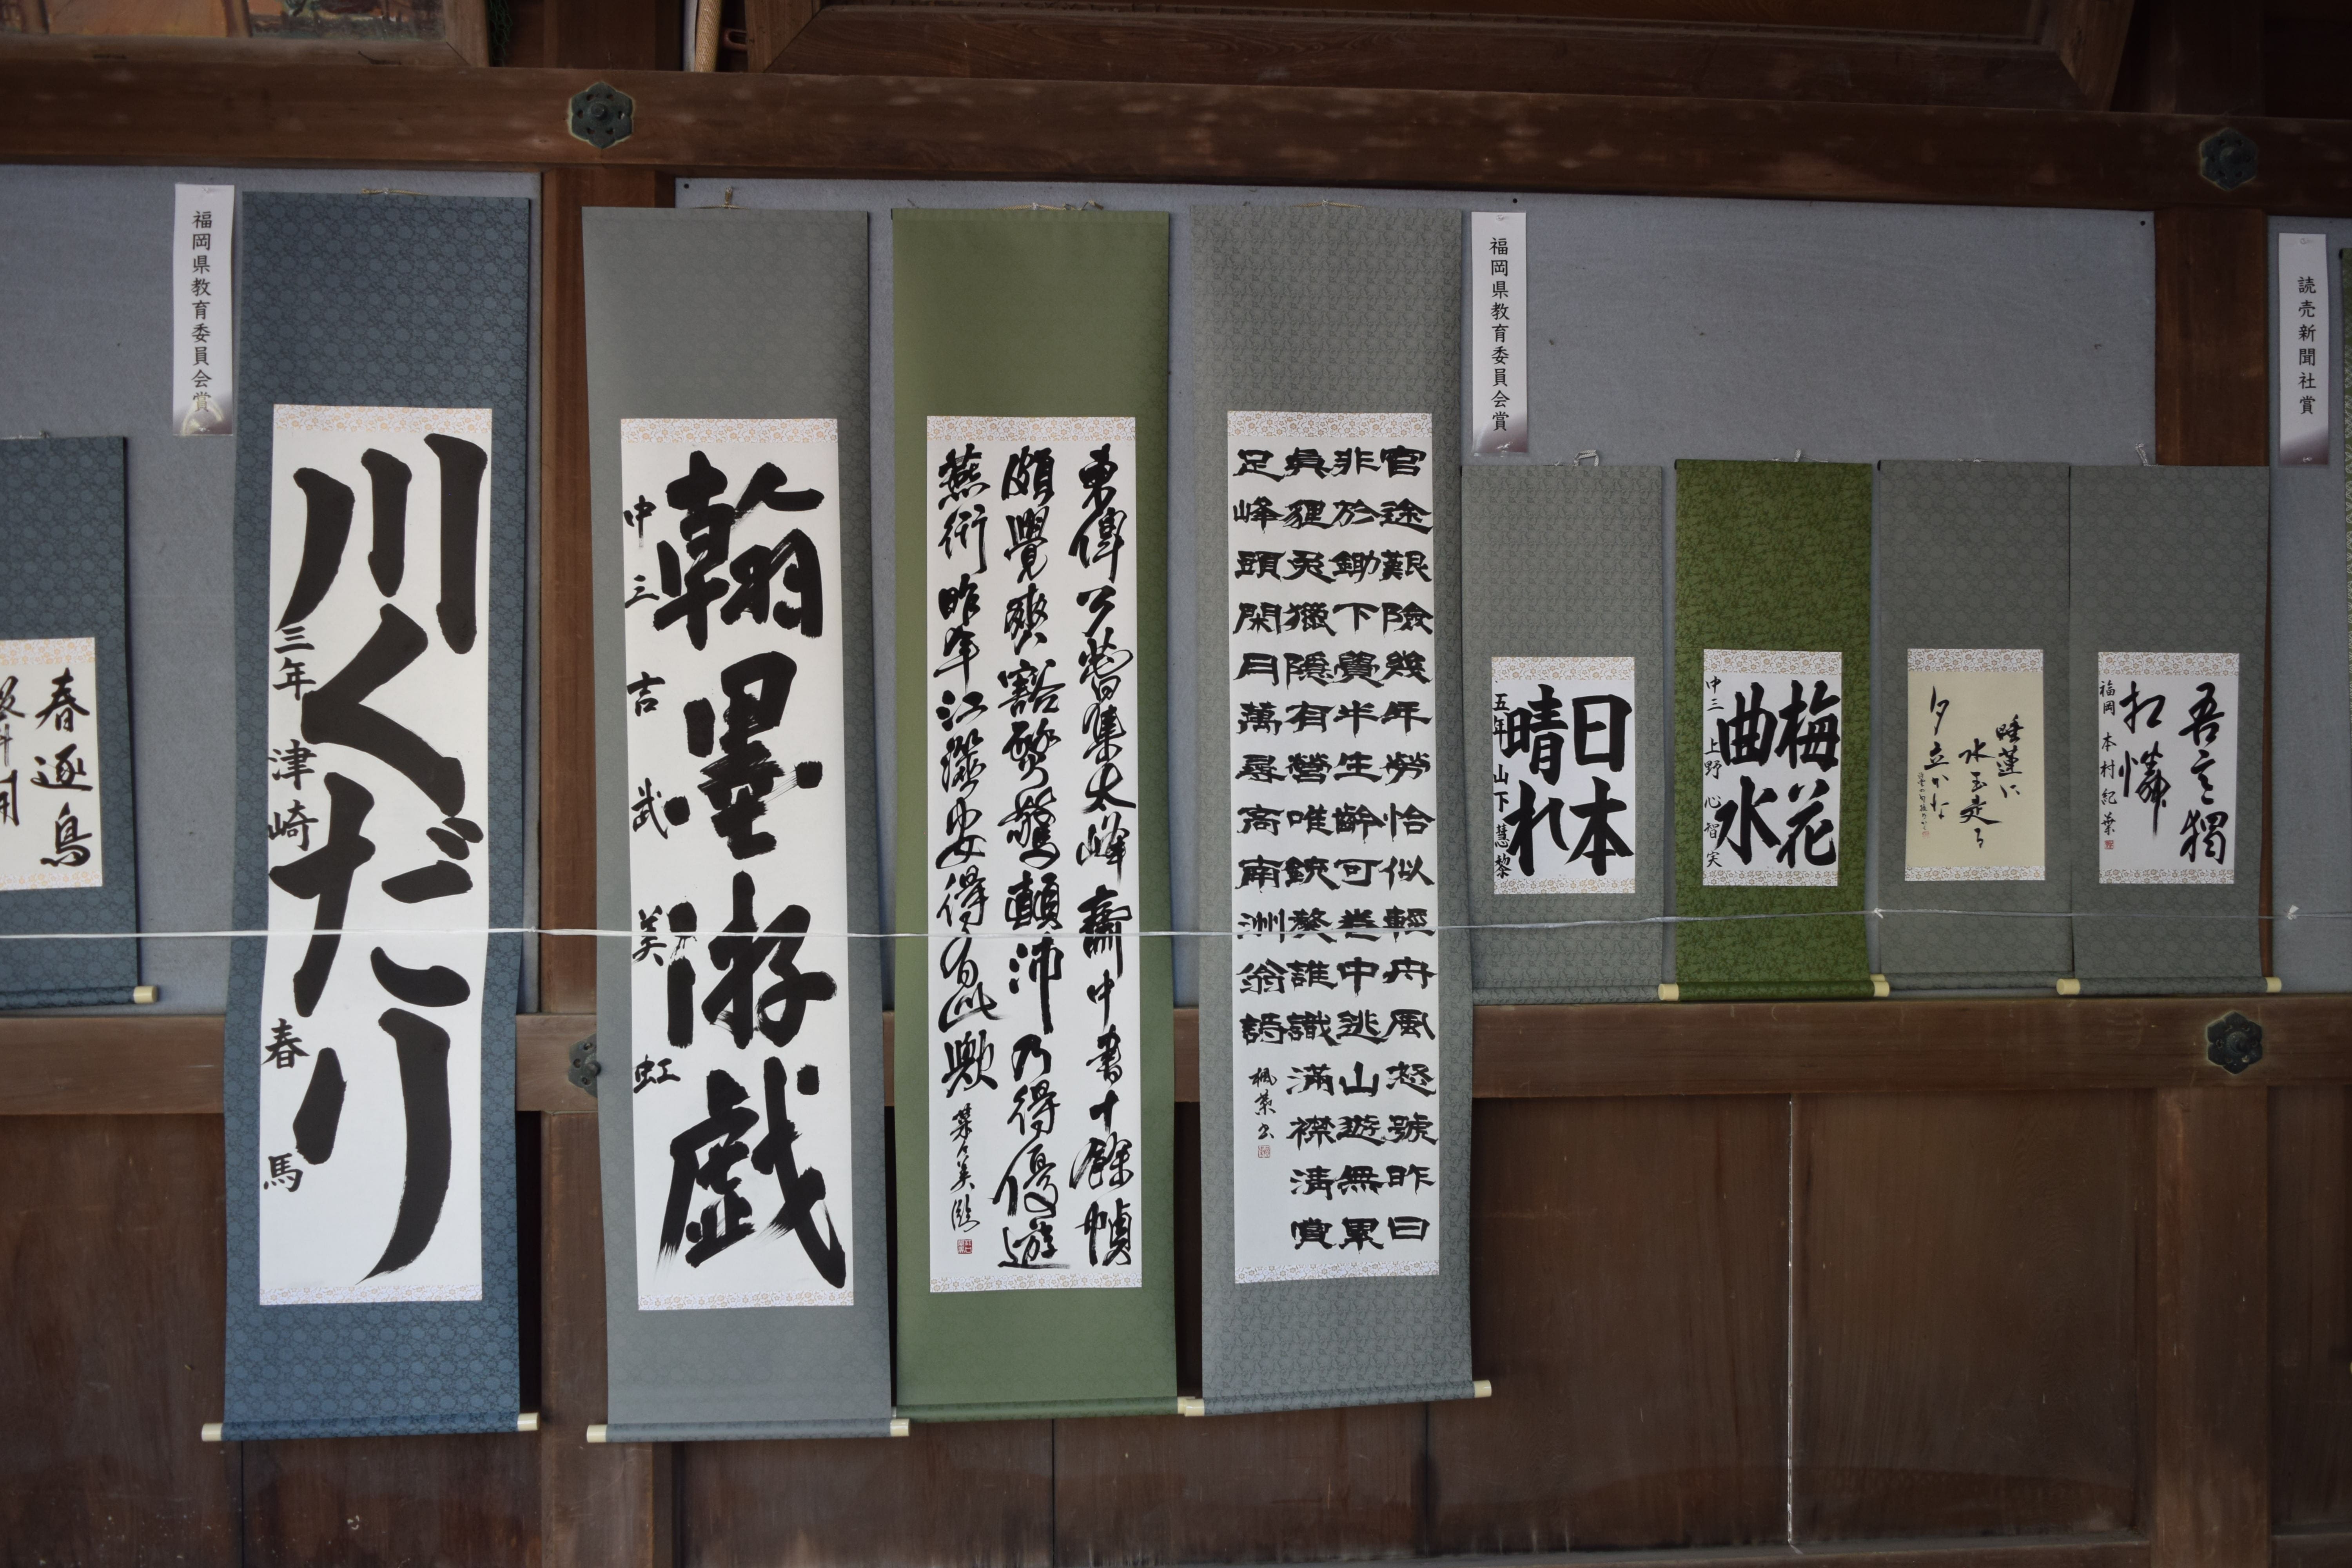 春逐鳥
福岡県教育委員会賞
川くだり
三年 津崎 春馬
翰墨游戯
中三 吉武 美虹
東偉公嘗集太峰齋中書十餘幀
頗覺爽豁驚顛沛乃得優遊
燕衎昨年江安得有此歟
官途艱險幾年勞恰似輕舟風怒號昨日
非於鋤下覺半生齡可卷中逃山遊無累
眞狸兎獵隱有營唯銃獒誰識滿襟清賞
足峰頭閑月萬尋高南洲翁詩
福岡県教育委員会賞
日本
晴れ
五年 山下 慧黎
梅花
曲水
中三 上野 心智実
睡蓮に
水玉走る
夕立かな
福岡 本村 紀葉
読売新聞社賞